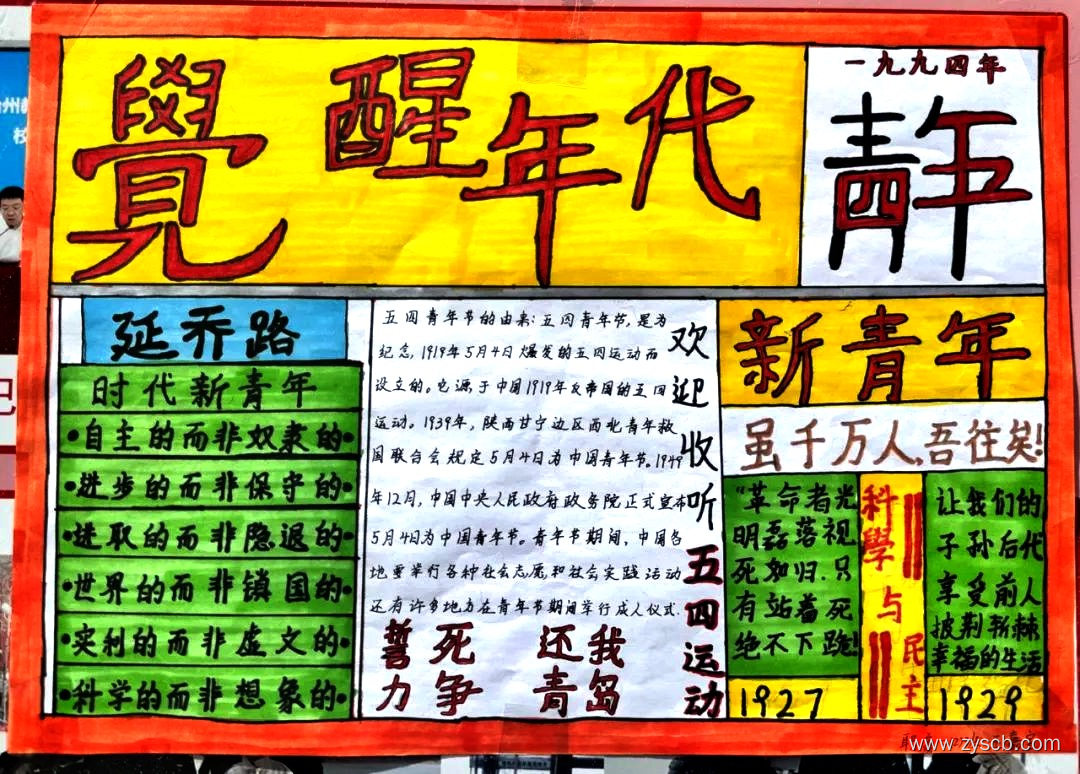 覺醒年代
一九九四年
青年
五四
延乔路
时代新青年
•自主的而非奴隶的•
•进步的而非保守的•
•进取的而非隐退的•
•世界的而非锁国的•
•实利的而非虚文的•
•科学的而非想象的•
五四青年节的由来:五四青年节,是为
纪念,1919年5月4日爆发的五四运动而
设立的。它源于中国1919年反帝国的五四
运动。1939年,陕西甘宁边区西北青年救
国联合会规定5月4日为中国青年节。1949
年12月,中国中央人民政府政务院正式宣布
5月4日为中国青年节。青年节期间,中国各
地要举行各种社会志愿和社会实践活动
还有许多地方在青年节期间举行成人仪式.
誓死
力争
还我
青岛
欢迎收听五四运动
新青年
虽千万人,吾往矣!
“革命者光
明磊落视
死如归.只
有站着死
绝不下跪!
1927
科學与民主
让我们的
子孙后代
享受前人
披荆斩棘
幸福的生活
1929
www.zyscb.com